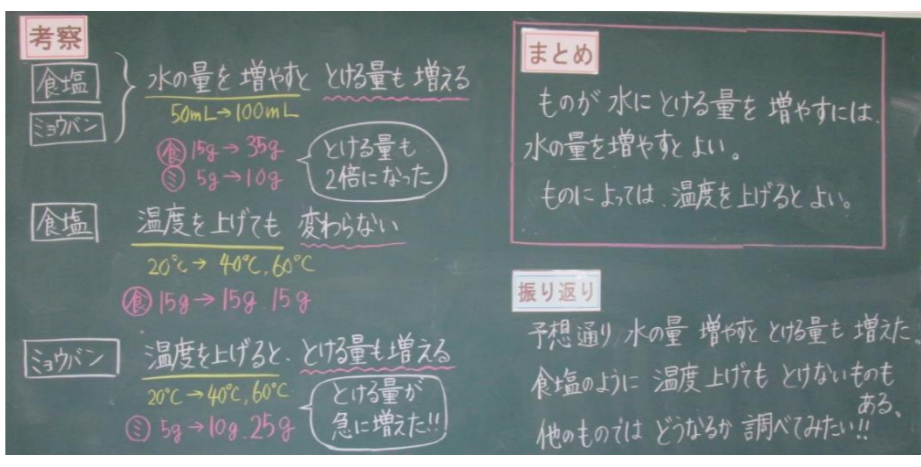 考察
食塩
ミョウバン
水の量を増やすと とける量も増える
50mL→100mL
食 15g→35g
ミ 5g→10g
とける量も
2倍になった
食塩
温度を上げても 変わらない
20℃→40℃,60℃
食 15g→15g.15g
ミョウバン
温度を上げると、とける量も増える
20℃→40℃,60℃
ミ 5g→10g.25g
とける量が
急に増えた!!
まとめ
ものが水にとける量を増やすには、
水の量を増やすとよい。
ものによっては、温度を上げるとよい。
振り返り
予想通り 水の量 増やすと とける量も 増えた。
食塩のように 温度上げても とけないものも
ある、
他のものでは どうなるか 調べてみたい!!